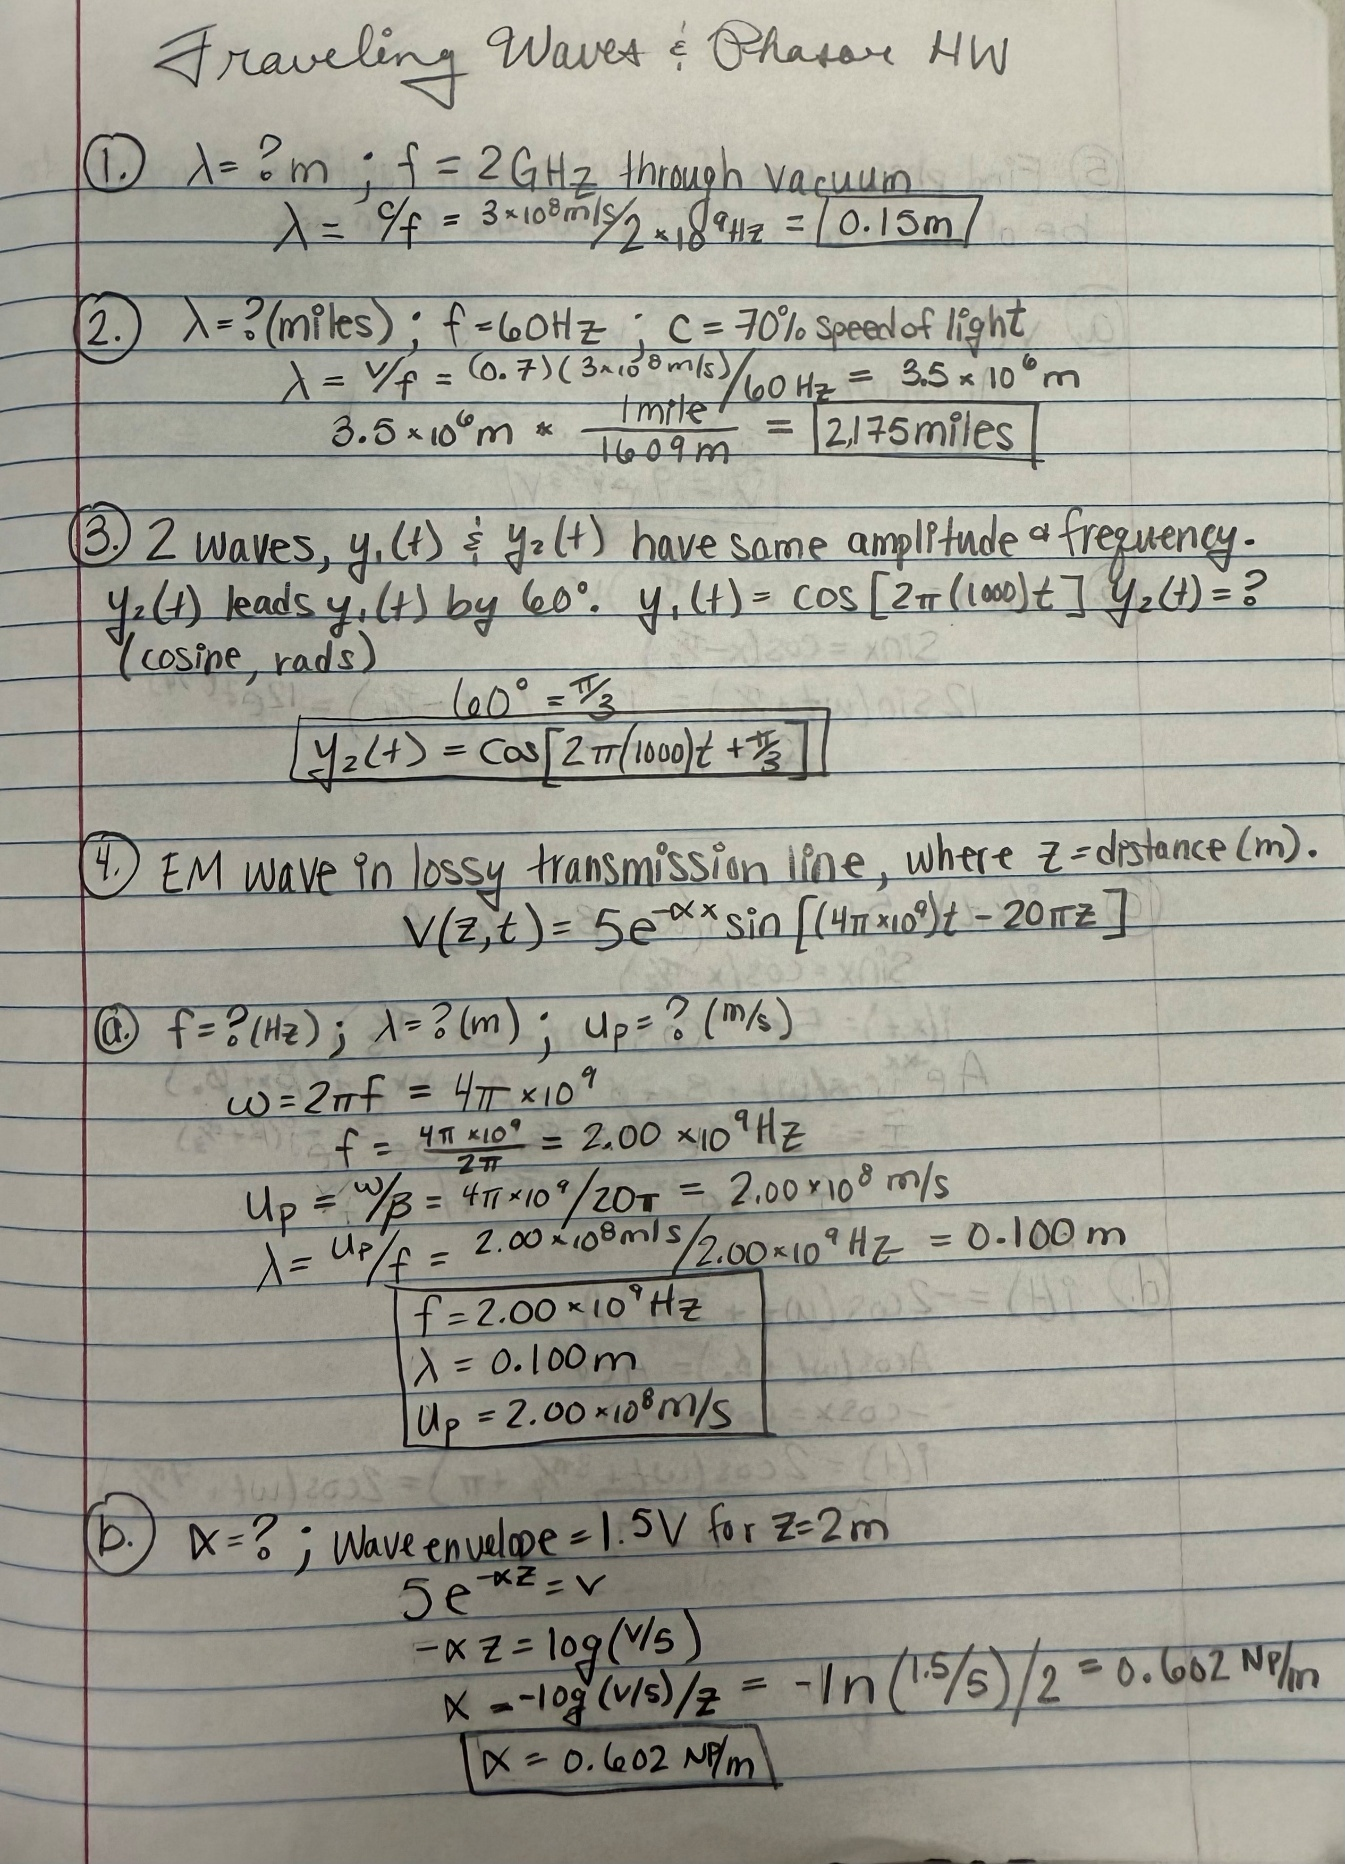 Traveling Waves & Phasor HW
1. λ = ? m ; f = 2GHz through vacuum
λ = c/f = 3×10⁸m/s/2×10⁹Hz = 0.15m
2. λ=?(miles); f=60Hz ; c = 70% speed of light
λ = v/f = (0.7)(3×10⁸m/s)/60Hz = 3.5 × 10⁶m
3.5×10⁶m * 1mile/1609m = 2,175miles
3. 2 waves, y₁(t) & y₂(t) have same amplitude & frequency.
y₂(t) leads y₁(t) by 60°. y₁(t) = cos[2π(1000)t] y₂(t)=?
(cosine, rads)
60° = π/3
y₂(t) = cos[2π(1000)t + π/3]
4. EM wave in lossy transmission line, where z=distance (m).
V(z,t) = 5e^-αx sin[(4π×10⁹)t - 20πz]
a. f=?(Hz); λ=?(m); up=? (m/s)
ω=2πf = 4π×10⁹
f = 4π×10⁹/2π = 2.00 ×10⁹Hz
up = ω/β = 4π×10⁹/20π = 2.00×10⁸ m/s
λ = up/f = 2.00×10⁸m/s/2.00×10⁹Hz = 0.100m
f = 2.00×10⁹Hz
λ = 0.100m
up = 2.00×10⁸m/s
b. α=? ; Wave envelope = 1.5V for z=2m
5e^-αz = v
-αz = log(v/5)
α = -log(v/5)/z = -ln(1.5/5)/2 = 0.602 NP/m
α = 0.602 NP/m